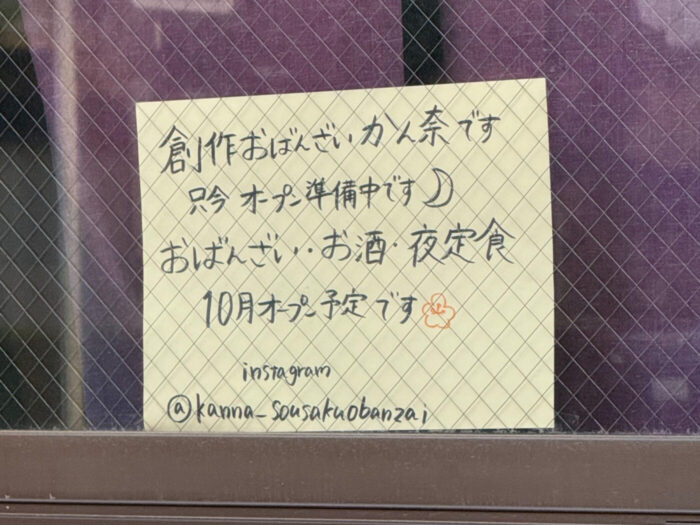 創作おばんざいかん奈です
只今オープン準備中です
おばんざい・お酒・夜定食
10月オープン予定です
instagram
@kanna_sousakuobanzai